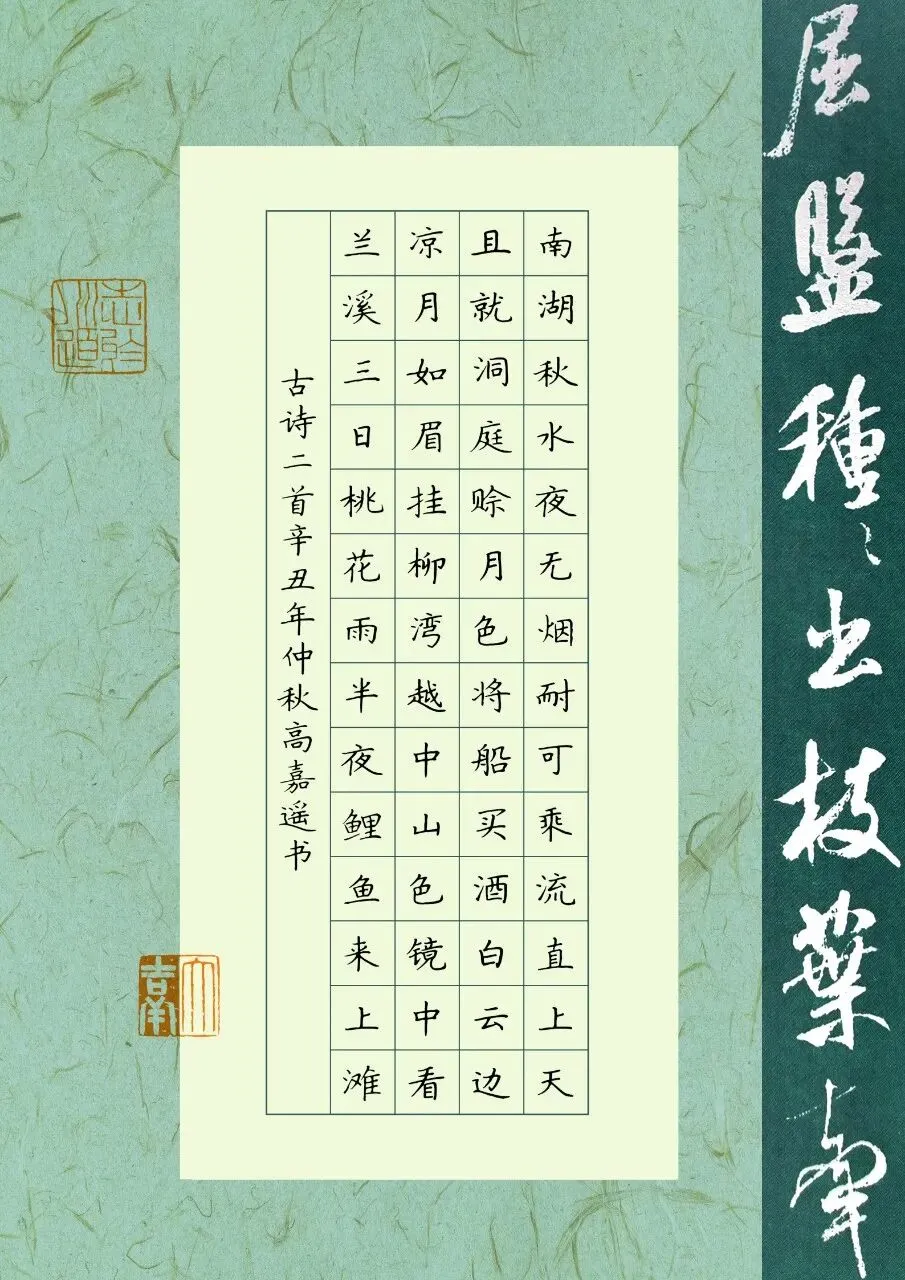 屈盤種種出枝葉牽
南湖秋水夜无烟耐可乘流直上天
且就洞庭赊月色将船买酒白云边
凉月如眉挂柳湾越中山色镜中看
兰溪三日桃花雨半夜鲤鱼来上滩
古诗二首辛丑年仲秋高嘉遥书
大吉羊